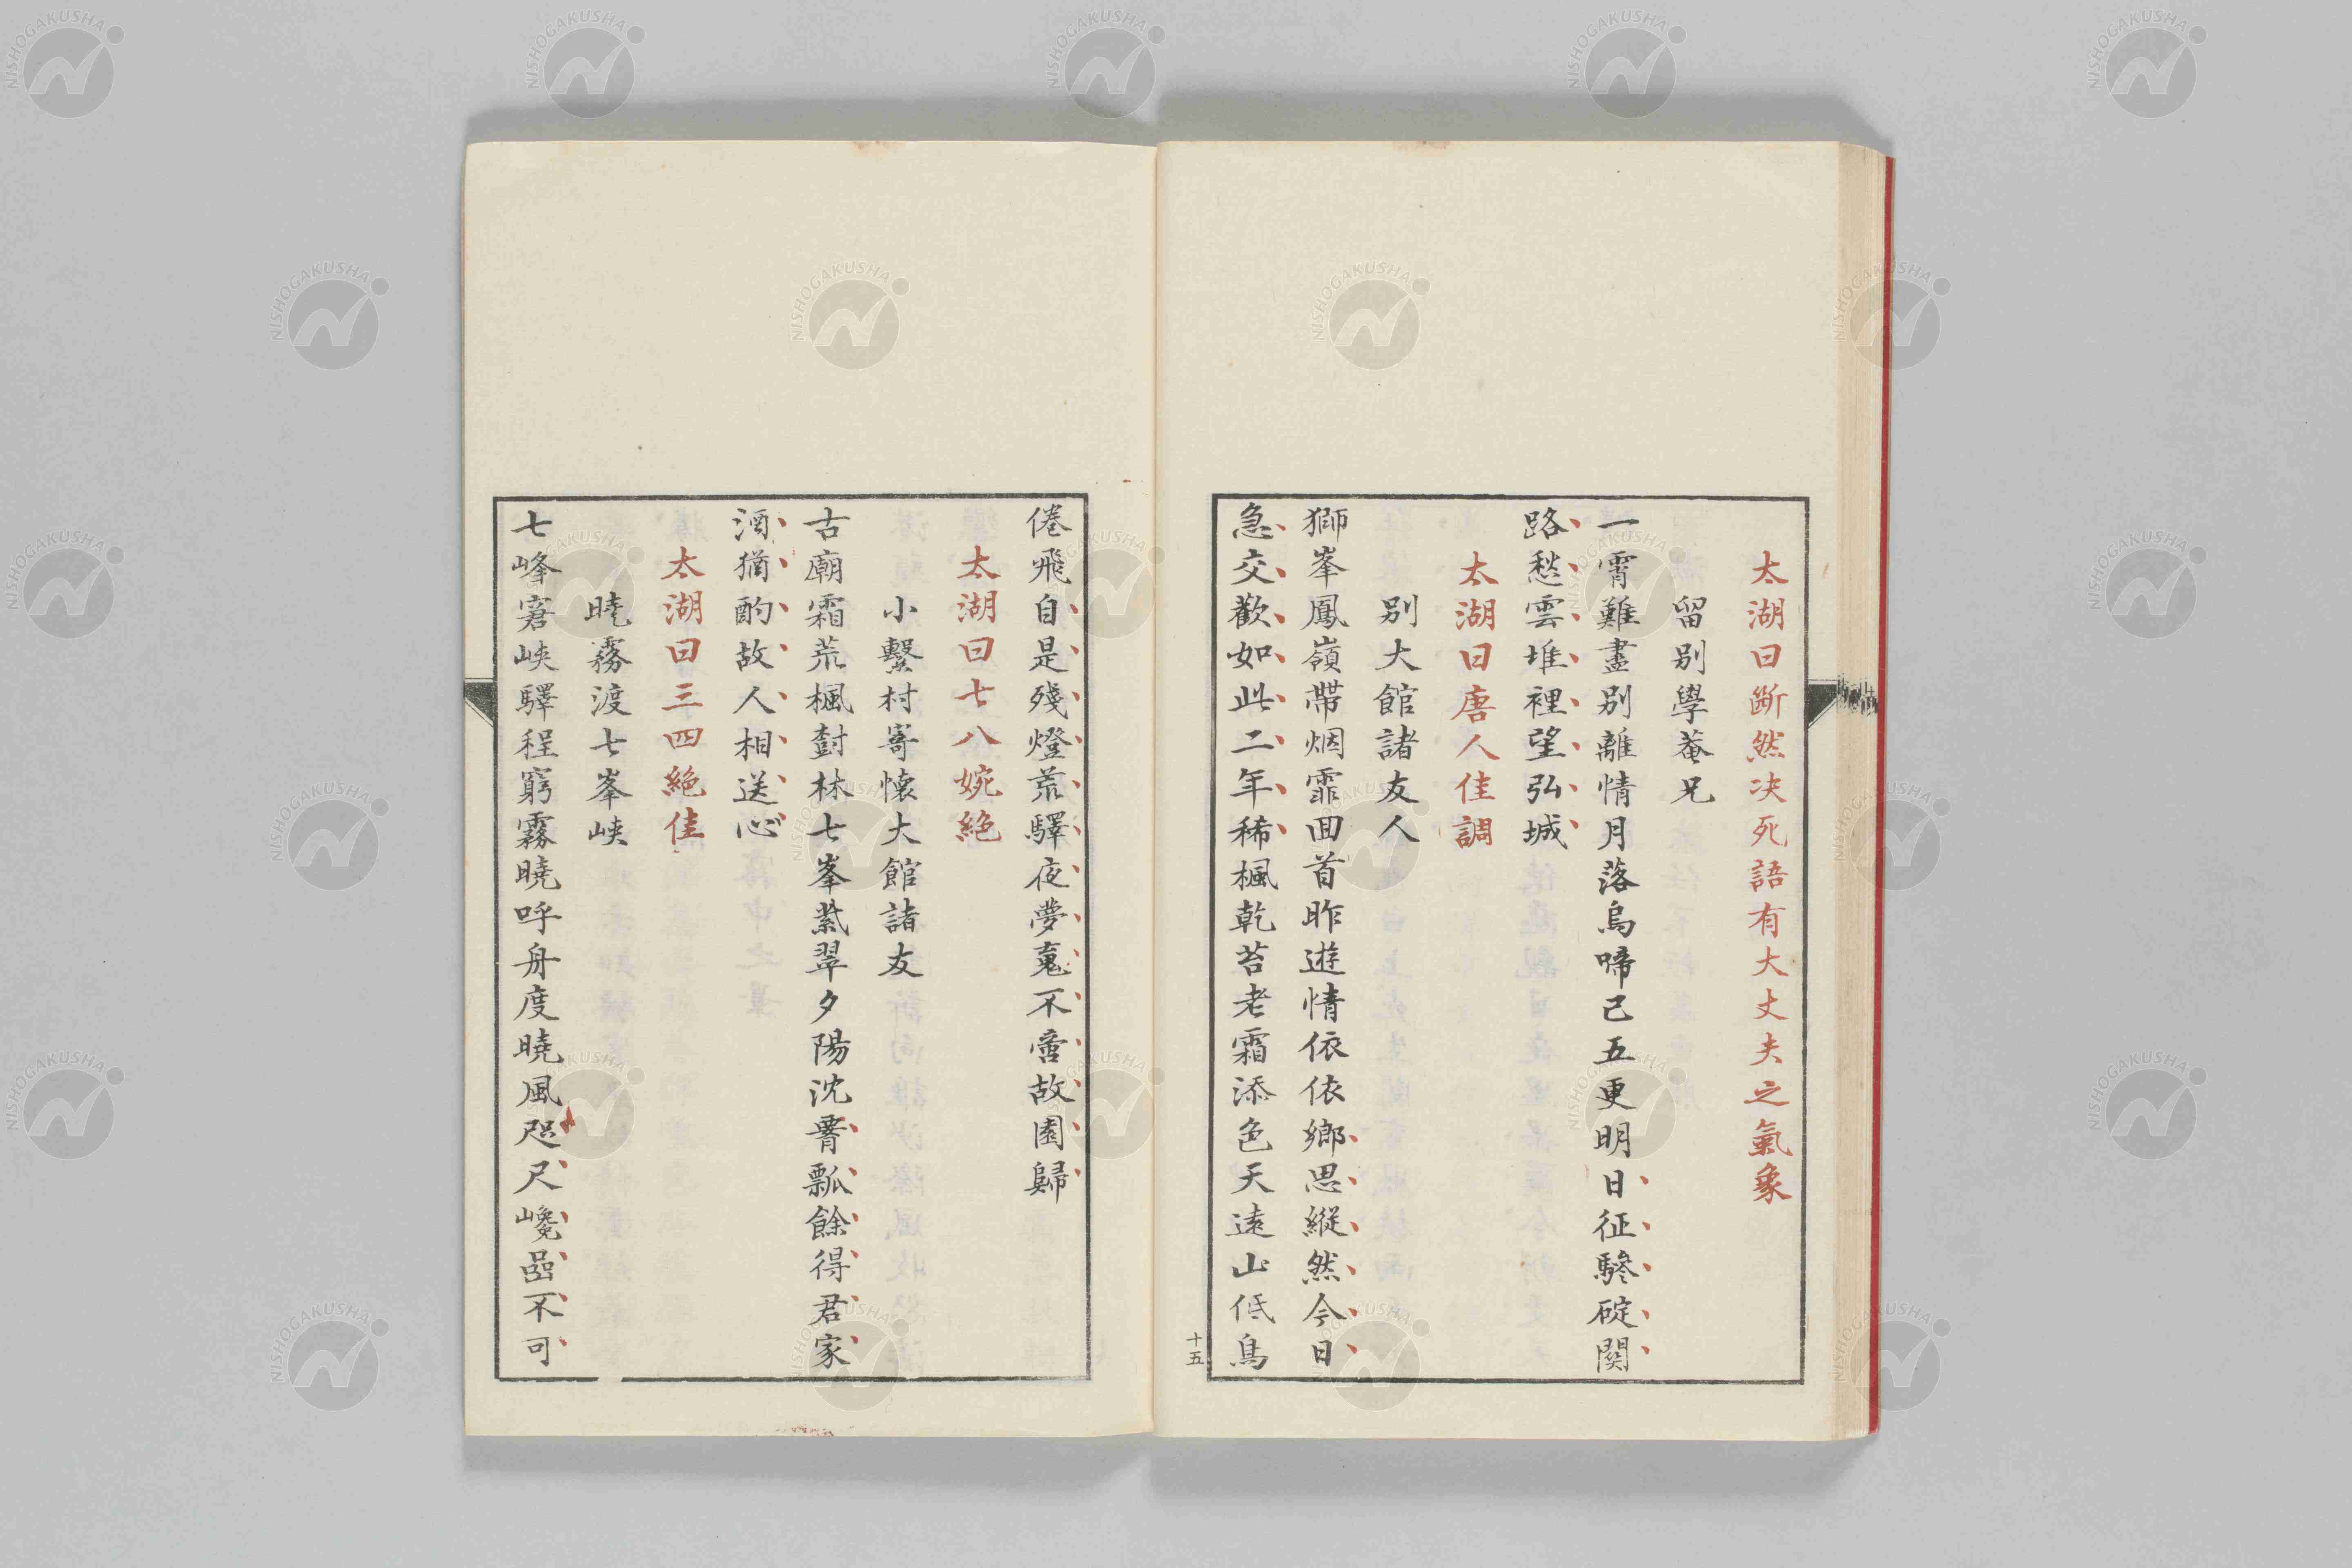 太湖曰斷然决死語有大丈夫之氣象
留別學菴兄
一霄難盡別離情月落烏啼已五更明日征驂碇關
路愁雲堆裡望弘城
太湖曰唐人佳調
別大館諸友人
獅峯鳳嶺帶烟霏囬首昨遊情依依鄉思縱然今日
急交歡如此二年稀楓乾苔老霜添色天遠山低鳥
十五
倦飛自是殘燈荒驛夜夢䰟不啻故園歸
太湖曰七八婉絕
小繫村寄懷大館諸友
古廟霜荒楓樹林七峯紫翠夕陽沈霽瓢餘得君家
酒猶酌故人相送心
太湖曰三四絕佳
曉霧渡七峯峽
七峰窘峽驛程窮霧曉呼舟度曉風咫尺巉嵒不可
NISHOGAKUSHA